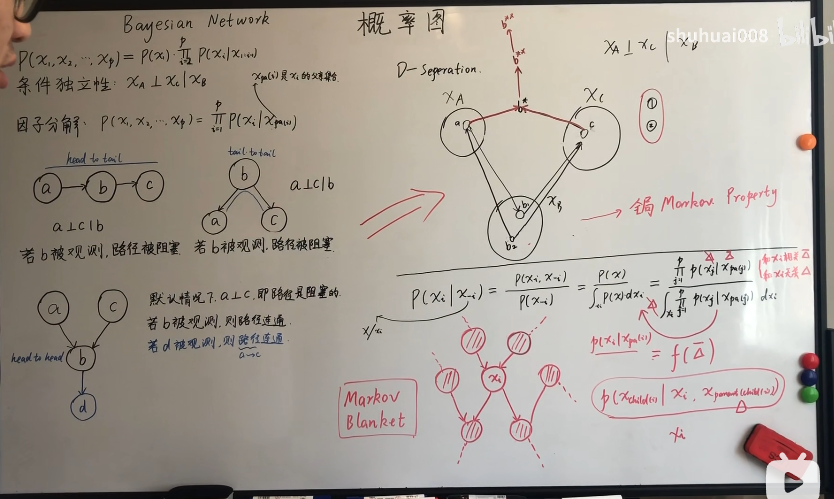 Bayesian Network
概率图
shuhuai008
bilibi
P(x₁, x₂, ⋯, xₚ) = P(x₁) ∏ᵢ₌₂ᵖ P(xᵢ|x₁:ᵢ₋₁)
条件独立性: x_A ⊥ x_C | x_B
x_pa(i) 是 xᵢ 的父亲集合
因子分解: P(x₁, x₂, ⋯, xₚ) = ∏ᵢ₌₁ᵖ P(xᵢ|x_pa(i))
head to tail
a b c
a ⊥ c | b
若b被观测,路径被阻塞
tail to tail
b
a c
a ⊥ c | b
若b被观测,路径被阻塞
a c
head to head b
d
默认情况下, a ⊥ c, 即路径是阻塞的.
若b被观测, 则路径连通.
若d被观测, 则路径连通
a→c
D-Seperation.
x_A ⊥ x_C | x_B
b**
b**
b*
x_A
x_C
a
c
① 
②
b₁
b₂
x_B
Markov Property
P(xᵢ|x₋ᵢ) = P(xᵢ, x₋ᵢ) / P(x₋ᵢ) = P(x) / ∫ₓᵢ P(x) dxᵢ = ∏ⱼ₌₁ᵖ P(xⱼ|x_pa(j)) / ∫ₓᵢ ∏ⱼ₌₁ᵖ P(xⱼ|x_pa(j)) dxᵢ
和xᵢ相关 Δ̄
和xᵢ无关 Δ
x/xᵢ
P(xᵢ|x_pa(i)) = f(Δ̄)
xᵢ
Markov
Blanket
P(x_child(i) | xᵢ, x_parent(child(i)))
Δ
xᵢ